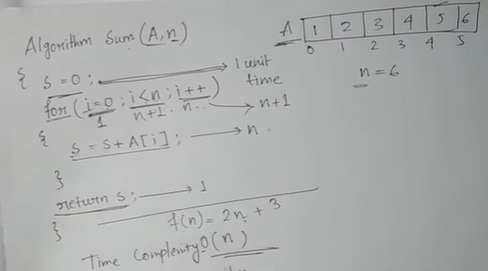 Algorithm Sum (A, n)
{ S = 0 ; → 1 unit time
for (i=0 ; i<n ; i++) → n+1
1 n+1 n
{
S = S + A[i] ; → n
}
return s ; → 1
}
f(n) = 2n + 3
Time Complexity O(n)
A 1 2 3 4 5 6
0 1 2 3 4 5
n = 6